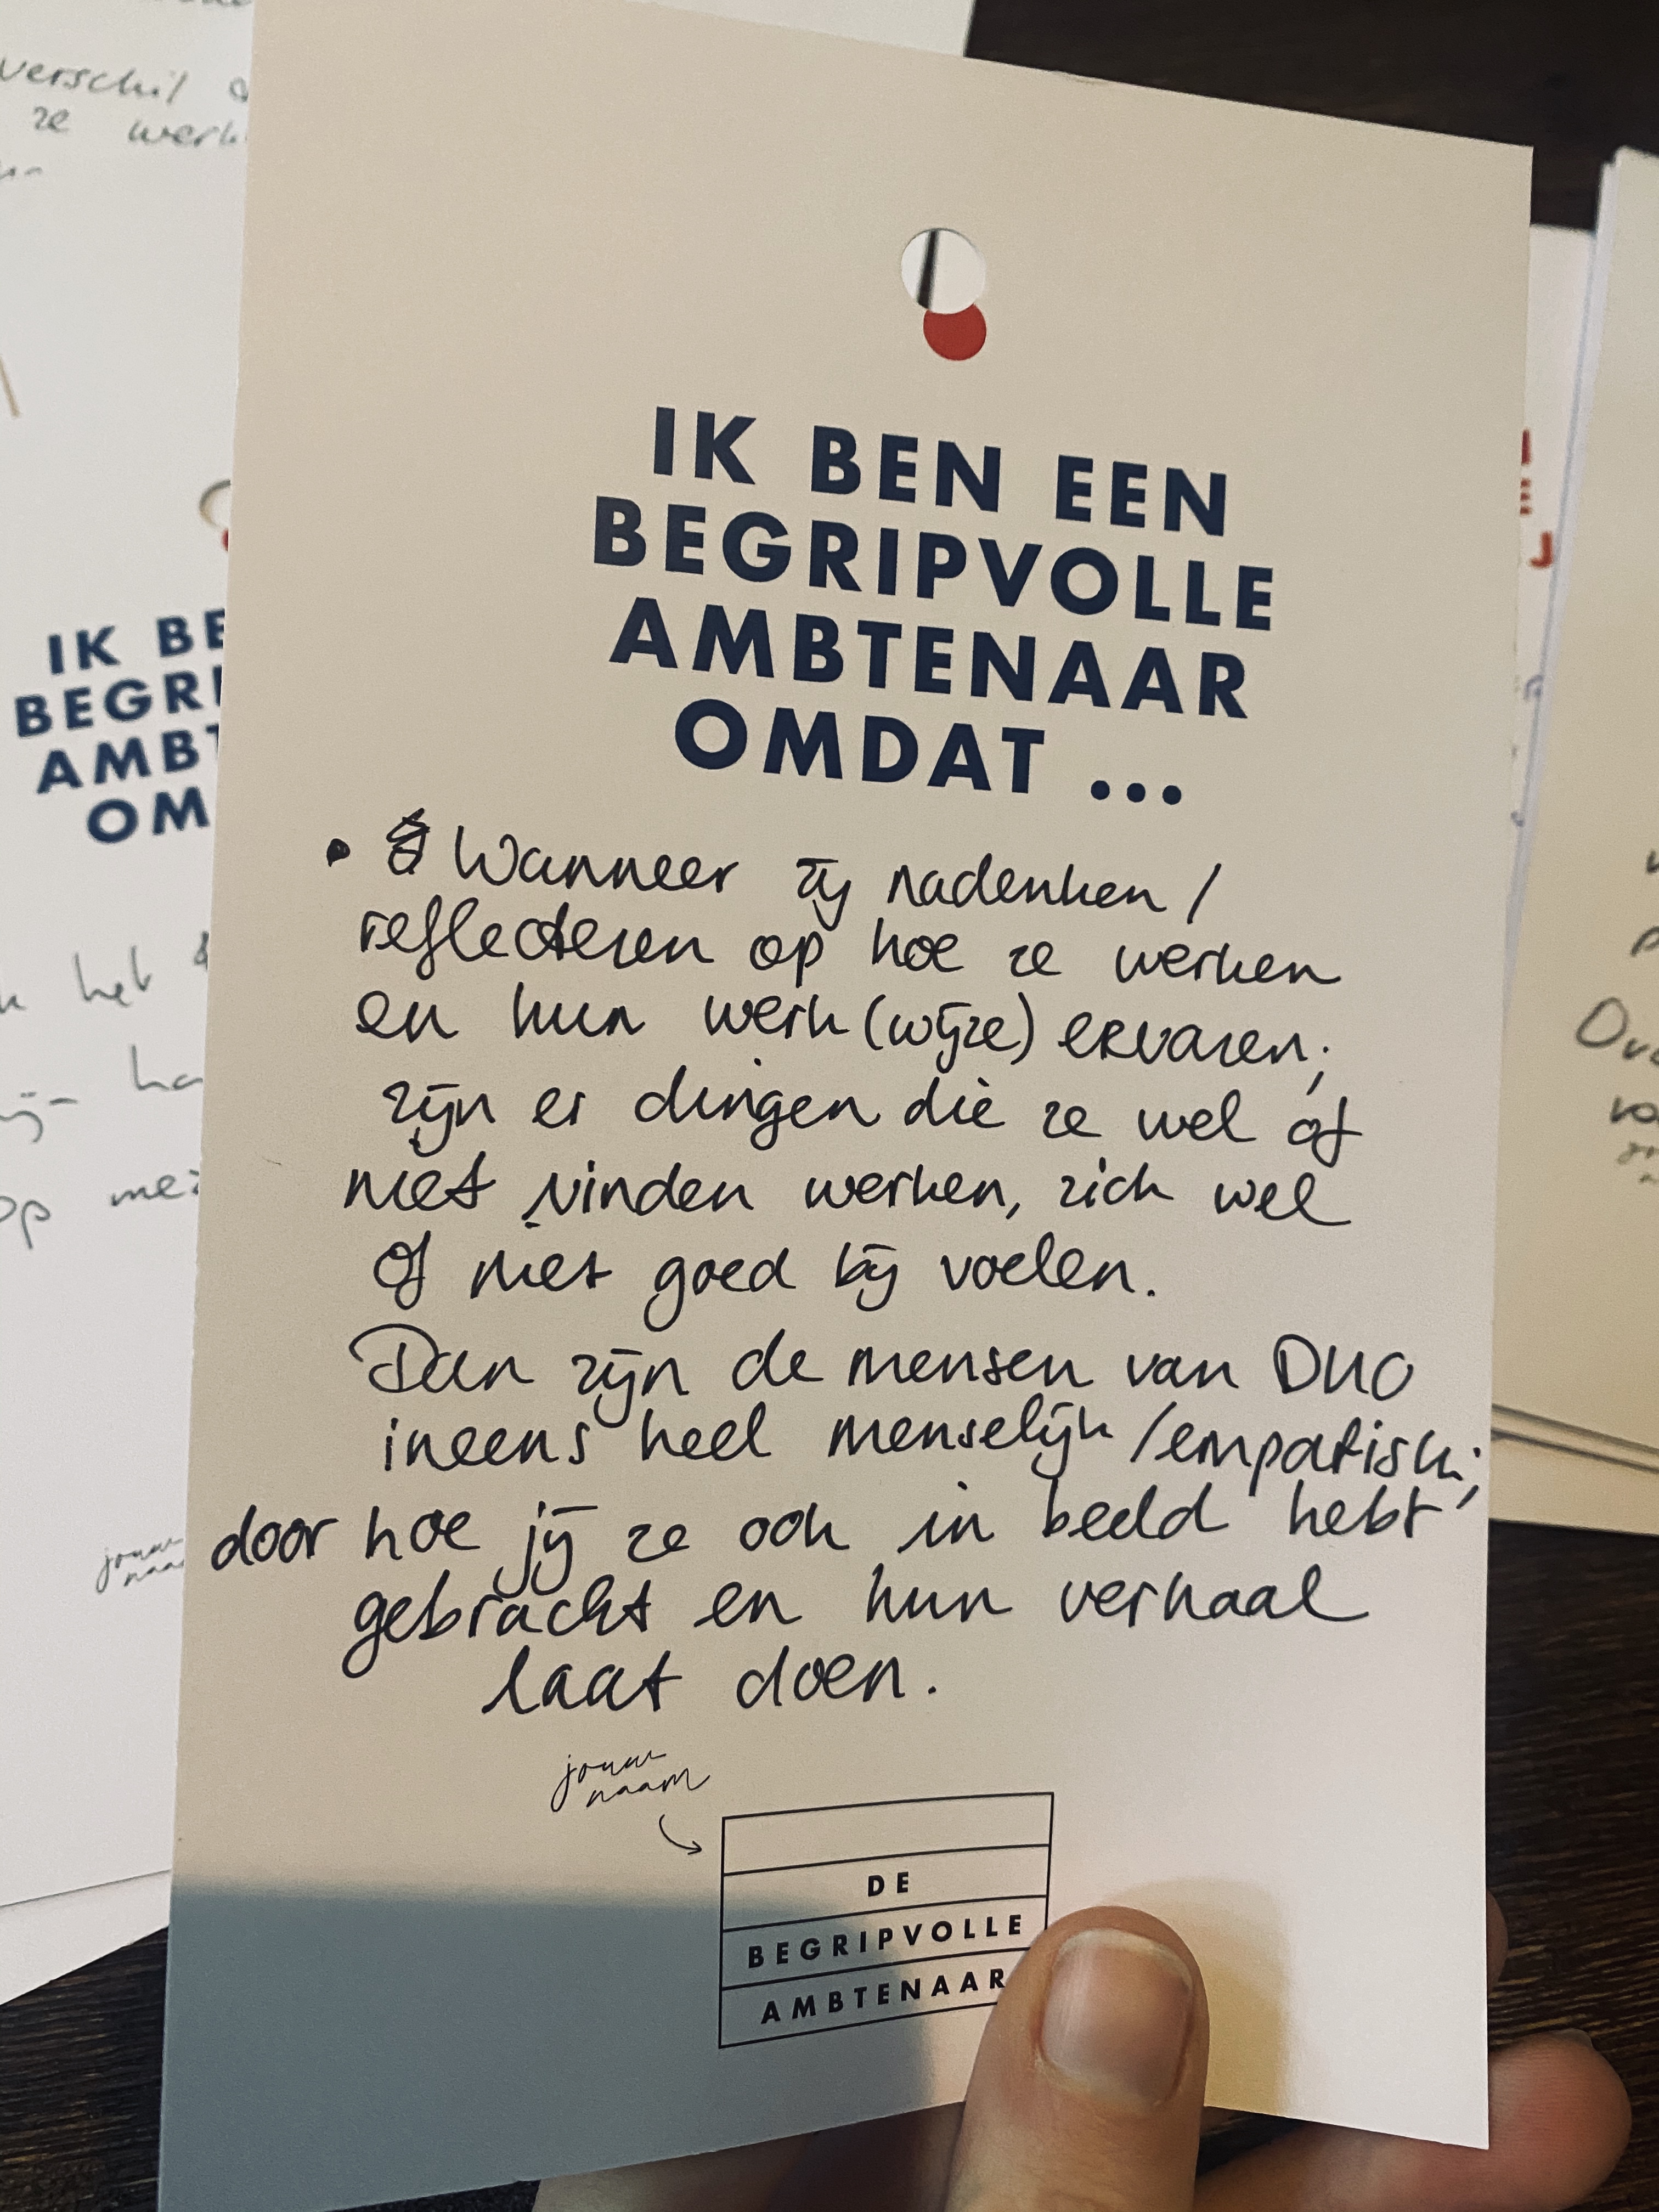 verschil
ze werk
IK BE
BEGRI
AMBT
OM
het
op
jouw
naa
IK BEN EEN
BEGRIPVOLLE
AMBTENAAR
OMDAT ...
• Wanneer zij nadenken /
reflecteren op hoe ze werken
en hun werk(wijze) ervaren;
zijn er dingen die ze wel of
niet vinden werken, zich wel
of niet goed bij voelen.
Dan zijn de mensen van DUO
ineens heel menselijk/empatisch;
door hoe jij ze ook in beeld hebt
gebracht en hun verhaal
laat doen.
jouw
naam
DE
BEGRIPVOLLE
AMBTENAAR
E
J